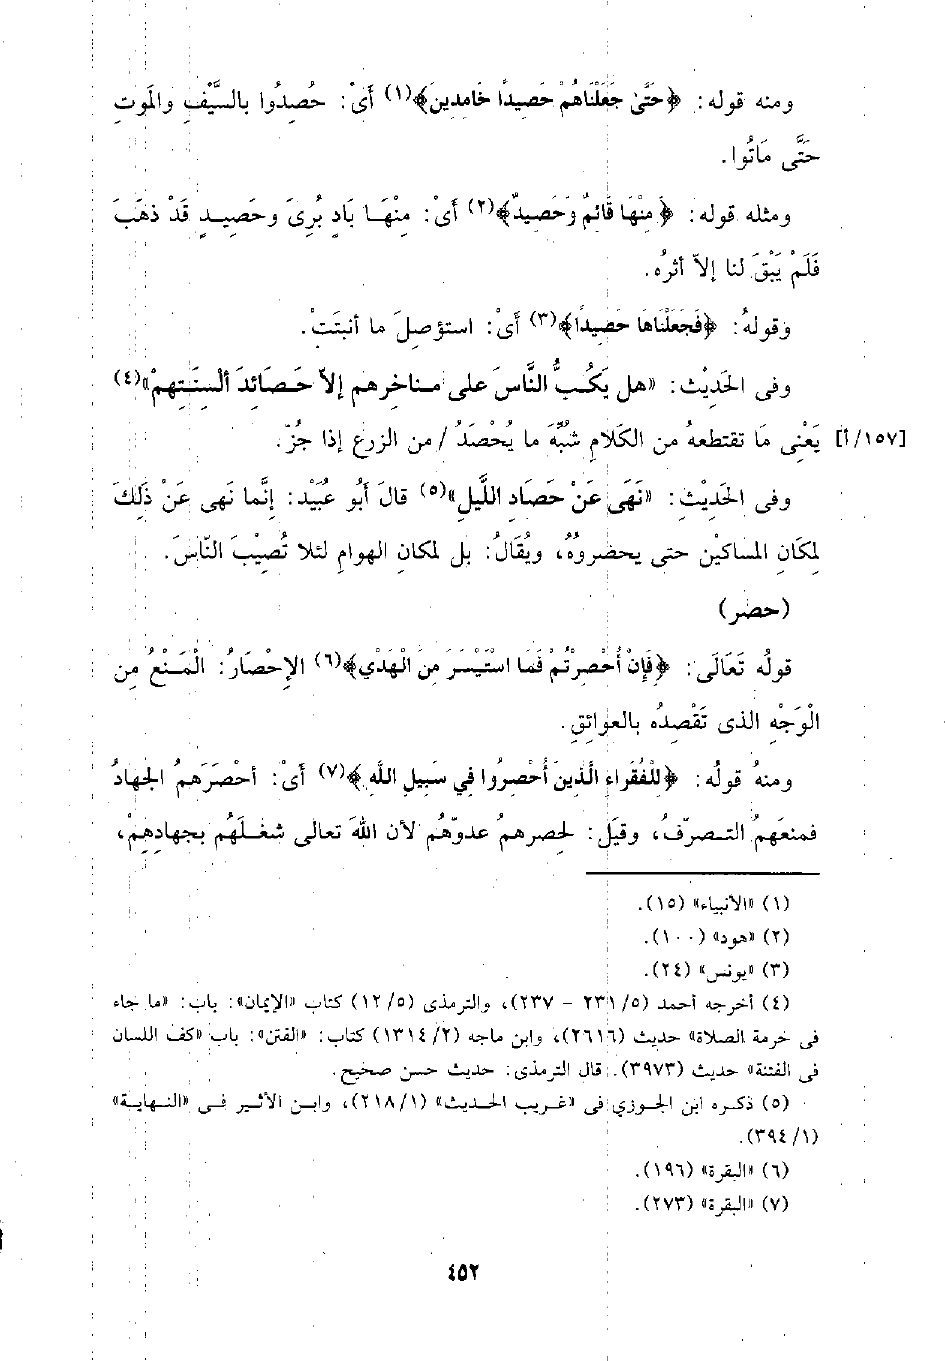 ومنه قوله: ﴿حَتَّىٰ جَعَلْنَاهُمْ حَصِيداً خَامِدِينَ﴾(١) أىْ: حُصِدُوا بالسَّيْفِ والمَوتِ
حَتَّى مَاتُوا.
ومثله قوله: ﴿مِنْهَا قَائِمٌ وَحَصِيدٌ﴾(٢) أىْ: مِنْهَا بَادٍ يُرِىَ وحَصِيدٍ قَدْ ذهَبَ
فَلَمْ يَبْقَ لنا إلاّ أثرُه.
وقولهُ: ﴿فَجَعَلْنَاهَا حَصِيدًا﴾(٣) أىْ: استؤصِلَ ما أنبتَتْ.
وفى الحَدِيْث: «هل يَكُبُّ النَّاسَ على مناخرهم إلاّ حَصَائدَ ألسنَتِهمْ»(٤)
[١٥٧/أ] يَعْنِى مَا تقتطعهُ من الكَلامِ شبَّهَ ما يُحْصَدُ/ من الزرع إذا جُزّ.
وفى الحَدِيْث: «نَهَى عَنْ حَصَاد اللَّيلِ»(٥) قالَ أبُو عُبَيْد: إنَّما نَهى عَنْ ذَلِكَ
لِمكَانِ المساكيْن حتى يحضروهُ، ويُقَالُ: بل لمكان الهوام لئلا تُصِيْبَ النّاسَ.
(حصر)
قولُه تَعَالَى: ﴿فَإِنْ أُحْصِرْتُمْ فَمَا اسْتَيْسَرَ مِنَ الْهَدْيِ﴾(٦) الإحْصَارُ: الْمَنْعُ مِن
الْوَجْهِ الذى تَقْصِدُه بالعوائِقِ.
ومنهُ قولُه: ﴿لِلْفُقَرَاءِ الَّذِينَ أُحْصِرُوا فِي سَبِيلِ اللَّهِ﴾(٧) أىْ: أحْصَرَهمُ الجهادُ
فمنعَهمُ التصرّفُ، وقيَل: لحصرهمُ عدوّهُم لأن اللهَ تعالى شغلَهُم بجهادِهِمْ،
(١) «الأنبياء» (١٥).
(٢) «هود» (١٠٠).
(٣) «يونس» (٢٤).
(٤) أخرجه أحمد (٥/ ٢٣١ - ٢٣٧)، والترمذى (٥/ ١٢) كتاب «الإيمان»: باب: «ما جاء
فى حرمة الصلاة» حديث (٢٦١٦)، وابن ماجه (٢/ ١٣١٤) كتاب: «الفتن»: باب «كف اللسان
فى الفتنة» حديث (٣٩٧٣). قال الترمذى: حديث حسن صحيح.
(٥) ذكره ابن الجوزي فى «غريب الحديث» (١/ ٢١٨)، وابن الأثير فى «النهاية»
(١/ ٣٩٤).
(٦) «البقرة» (١٩٦).
(٧) «البقرة» (٢٧٣).
٤٥٢